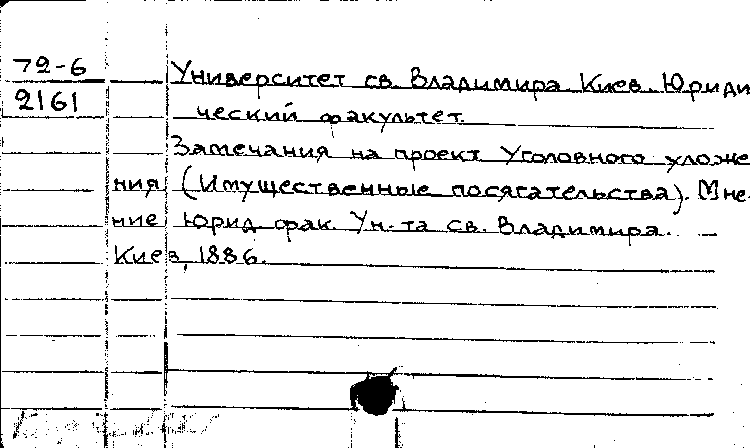 72-6
2161
Университет св. Владимира. Киев. Юриди
ческий факультет.
Замечания на проект Уголовного уложе
ния (Имущественные посягательства). Мне-
ние юрид. фак. Ун-та св. Владимира. –
Киев, 1886.